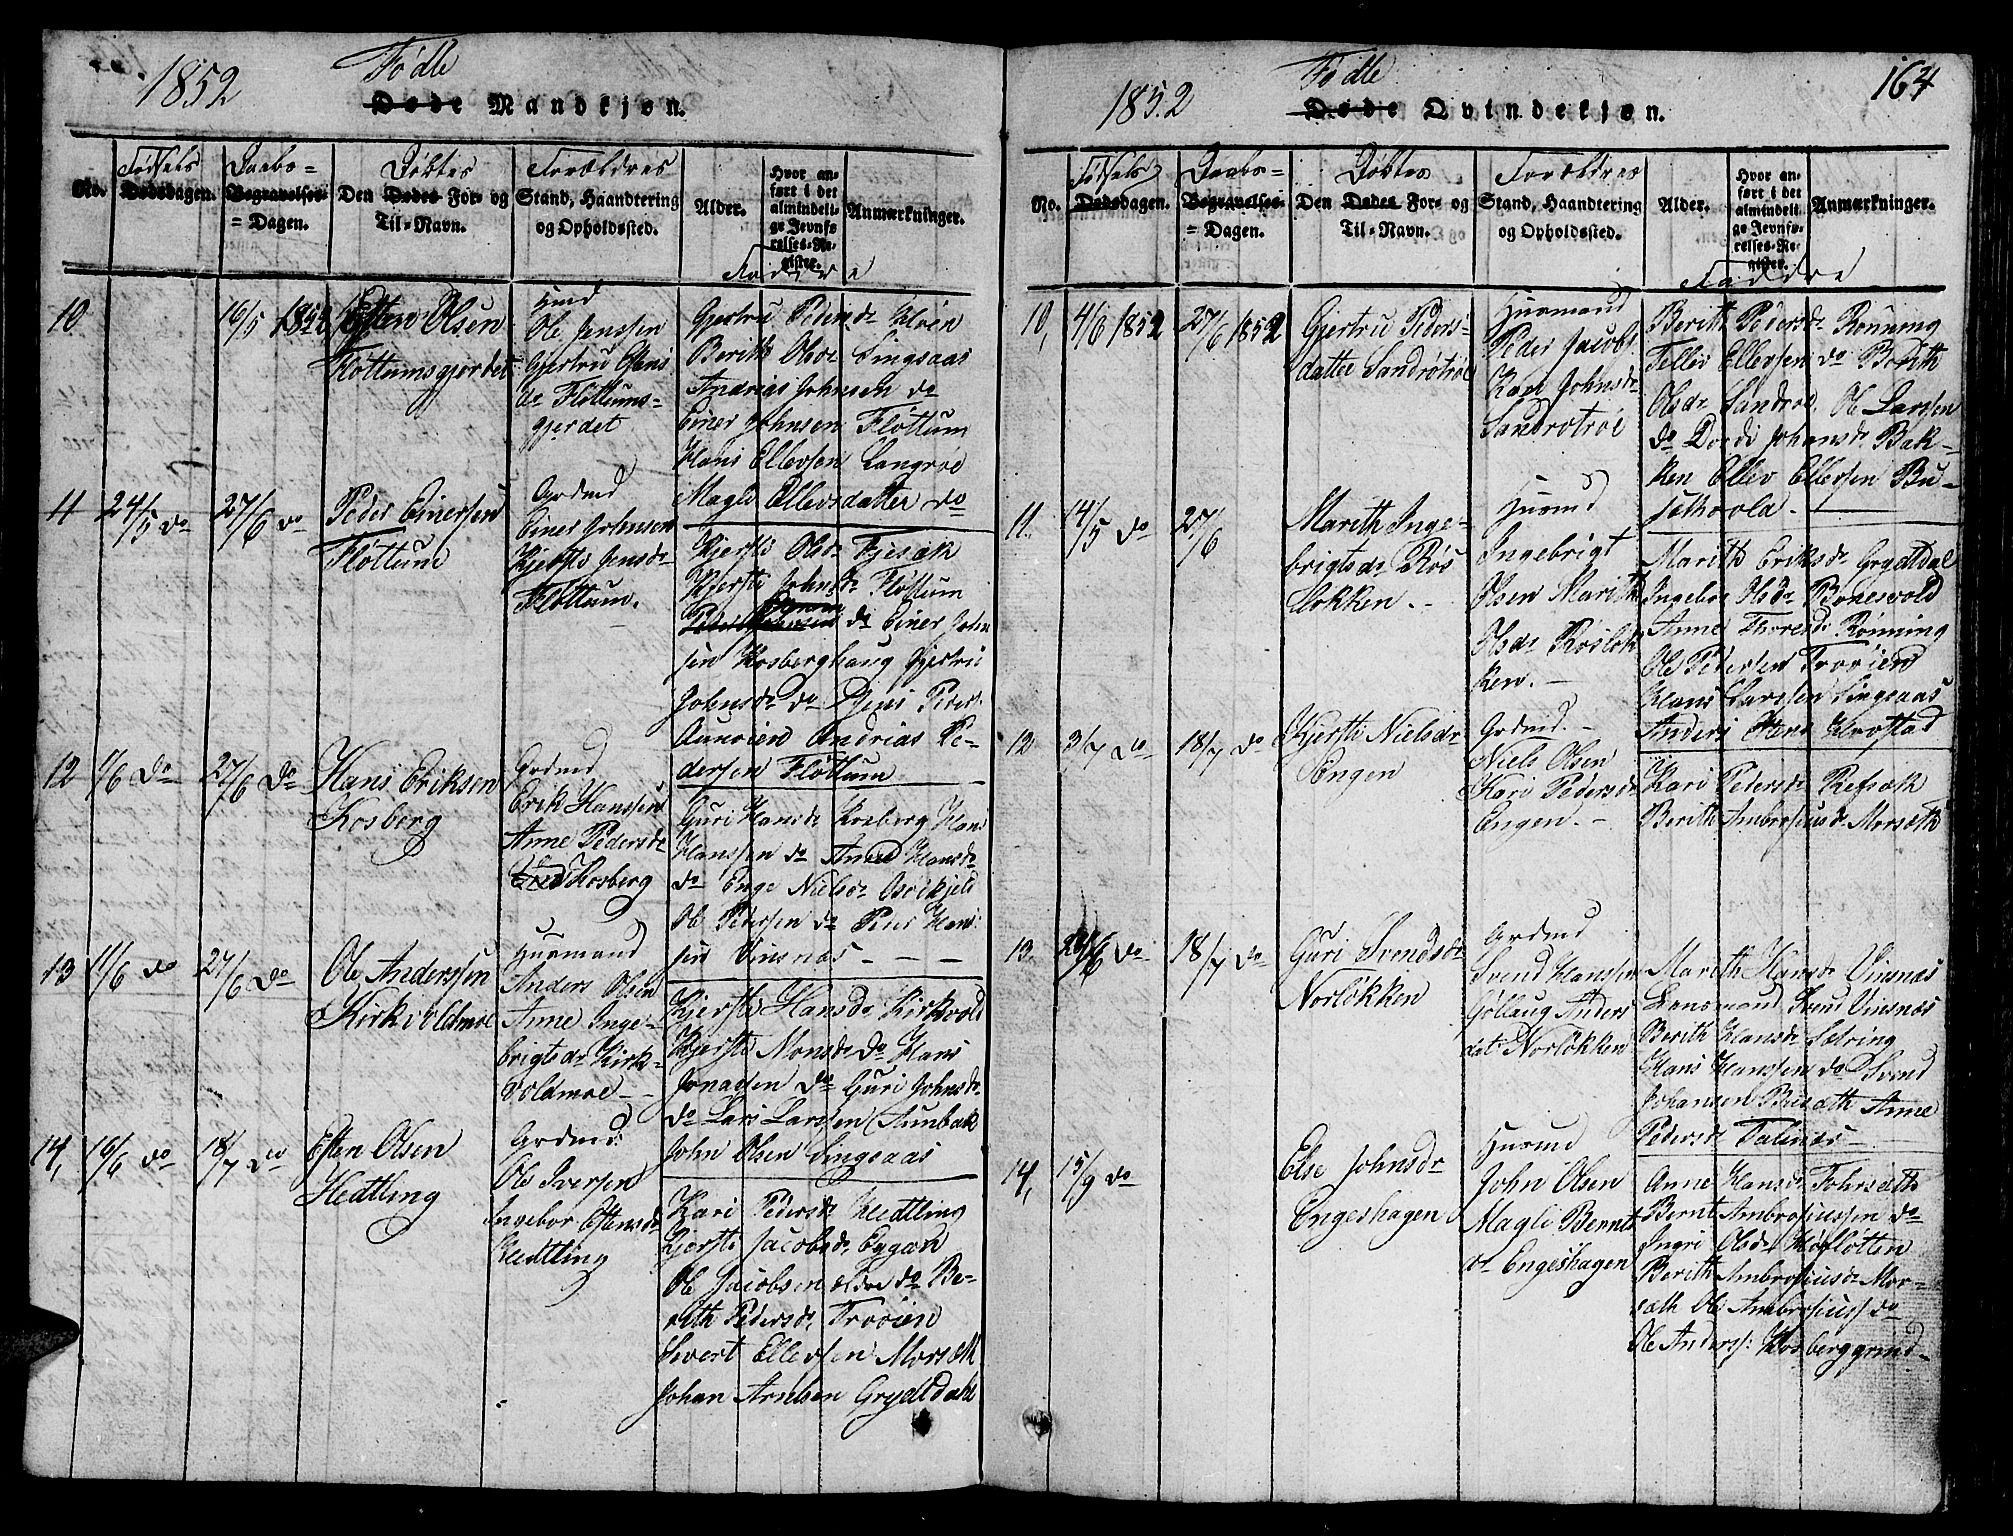 1852
Födte
Døde Mandkjøn.
No.
Fødsels
Dødsdagen.
Daabs=
Begravelses=
= Dagen.
Döbtes
Den Dødes For= og
Til=Navn.
Forældres
Stand, Haandtering
og Opholdssted.
Alder.
Hvor an=
ført i det
almindeli=
ge Jevnfø=
relses=Re=
gister.
Anmærkninger.
Faddre
10
16/5 1852
Esten Olsen
Flottumsgjerdet
Huusmd
Ole Jenssen
Gjertru Estens
dr Flöttums-
gjerdet
Berith Olsdr Singsaas
Andrias Johnsen do
Einer Johnsen Flöttum
Hans Ellevsen Langröe
Magli Ellevsdatter do
11
24/5 do
27/6 do
Peder Einersen
Flöttum
Grdmd
Einer Johnsen
Kjersti Jensdr
Flöttum.
Kjersti Olsdr Fjesæk
Kjersti Johnsdr Flöttum
do Einer John
sen Kosberghaug Gjertru
Johnsdr do Jens Peders
Aunoien Andrias Pe-
dersen Flöttum
12
1/6 do
27/6 do
Hans Eriksen
Kosberg
Grdmd
Erik Hanssen
Anne Pedersdr
Kosberg
Guri Hansdr Kosberg Hans
Hanssen do Anne Hansdr
do Enge Nielsdr
Ole Pedersen do Peder Hans
sen Vinsnæs - - -
13
11/6 do
27/6 do
Ole Anderssen
Kirkvoldmoe
Huusmand
Anders Olsen
Anne Inge-
brigtsdr Kirk-
voldmoe -
Kjersti Hansdr Kirkvold
Kjersti Monsdr do Hans
Jonassen do Guri Johnsdr
do Lars Larssen Aunbak
John Olsen Singsaas
14,
16/6 do
18/7 do
Esten Olsen
Hedtling
Grdmd
Ole Iversen
Ingebor Estensdr
Hedtling
Kari Pedersdr Hedtling
Kjersti Jacobsdr Eggan
Ole Jacobsen ældre do Be-
rith Pedersdr Troöien
Sivert Ellevsen Morsæth
Johan Arntsen Grydtdahl
1852
Födte
Døde Qvindekjøn.
164
No.
Fødsels
Dødsdagen.
Daabs=
Begravelses=
= Dagen.
Döbtes
Den Dødes For= og
Til=Navn.
Forældres
Stand, Haandtering
og Opholdssted.
Alder.
Hvor an=
ført i det
almindeli=
ge Jevnfø=
relses=Re=
gister.
Anmærkninger.
Faddre
10,
4/6 1852
27/6 1852
Gjertru Peders-
datter Sandrötrö
Huusmand
Peder Jacobs.
Kari Johnsdr
Sandrotröe
Berith Pedersdr Rönning
Tellev Ellevsen do Berith
Olsdr Sandröe, Ole Larssen
do Dordi Johansdr Bak-
ken Ellev Ellevsen Bu-
sethvold.
11.
14/5 do
27/6
Marith Inge-
brigtsdr Rös
lökken. -
Huusmd
Ingebrigt
Olsen Marith
Olsdr Röslök
ken. -
Marith Eriksdr Grydtdal
Ingebor Olsdr Bonesvold
Anne Thoresdr Rönning
Ole Pedersen Troöien
Hans Larssen Singsaas
Anders Hans Krogstad
12
3/7 do
18/7 do
Kjersti Nielsdr
Engen
Grdmd. -
Niels Olsen
Kari Pedersdr
Engen. -
Kari Pedersdr Refsæth
Berith Ambrosiusdr Morsæth
13.
do
18/7 do
Guri Svendsdr
Norlökken
Grdmd
Svend Hanssen
Göllaug Anders
dat. Norlökken
Marith Hansdr Vinsnæs
Lensmand Svend Vinsnæs
Berith Hansdr Sætring
Hans Hanssen do Svend
Johansen Busæth Anne
Pedersdr Talsnæs
14,
15/9 do
Else Johnsdr
Engeshagen
Huusmd
John Olsen
Magli Bernts
dr Engeshagen
Anne Hansdr Forsæth
Bernt Ambrosiussen do
Ingri Olsdr Hofslötten
Berith Ambrosiusdr Mor-
sæth Ole Ambrosiuss do
Ole Anderss: Kosberggrind